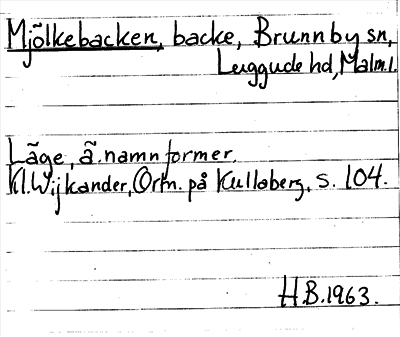 Mjölkebacken, backe, Brunnby sn,
Luggude hd, Malm.l.
Läge, ä. namnformer.
Kl. Wijkander, Ortn. på Kullaberg, s. 104.
H.B. 1963.